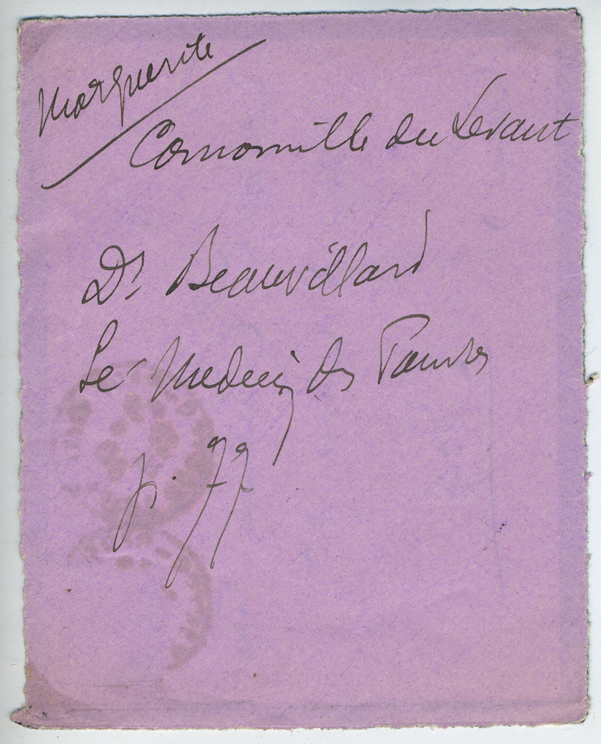 Marguerite
Camomille du Levant
Dr Beauvillard
Le Medecin des Pauvres
p. 77